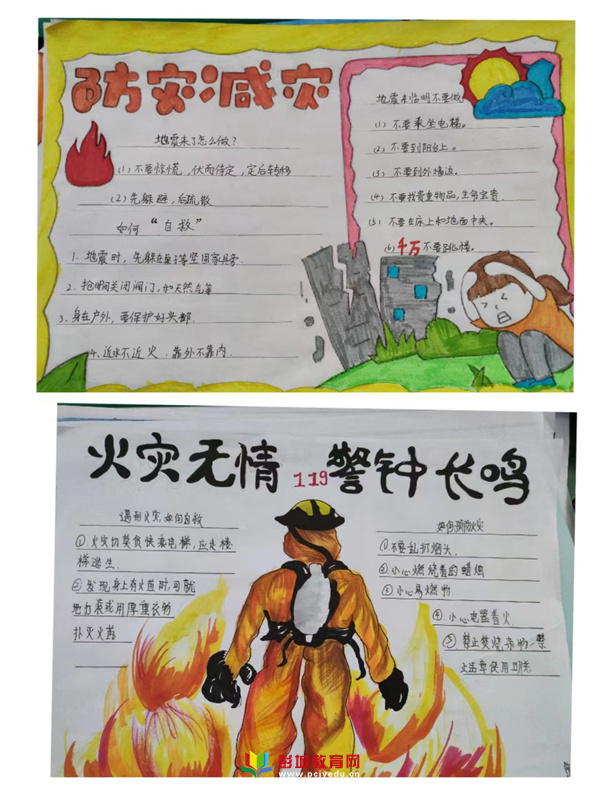 防灾减灾
地震来了怎么做?
(1)不要惊慌,伏而待定,定后转移
(2)先躲避,后疏散
如何“自救”
1. 地震时,先躲在桌子等坚固家具旁.
2. 抢时间关闭阀门,如天然气等
3. 身在户外,要保护好头部.
4、近水不近火.靠外不靠内.
地震来临时不要做
(1) 不要乘坐电梯。
(2) 不要到阳台上。
(3) 不要到外墙边。
(4) 不要找贵重物品,生命宝贵.
(5) 不要在床上和地面中央。
(6) 千万不要跳楼。
火灾无情 119 警钟长鸣
遇到火灾,如何自救
① 火灾切莫贪快乘电梯,应走楼
梯逃生.
② 发现身上有火苗时,可就
地打滚或用厚重衣物
扑灭火苗
如何预防火灾
①不要乱扔烟头.
②小心燃烧着的蜡烛
③小心易燃物
④ 小心电器着火.
⑤ 禁止焚烧杂物
彭城教育网
www.pcjyedu.cn